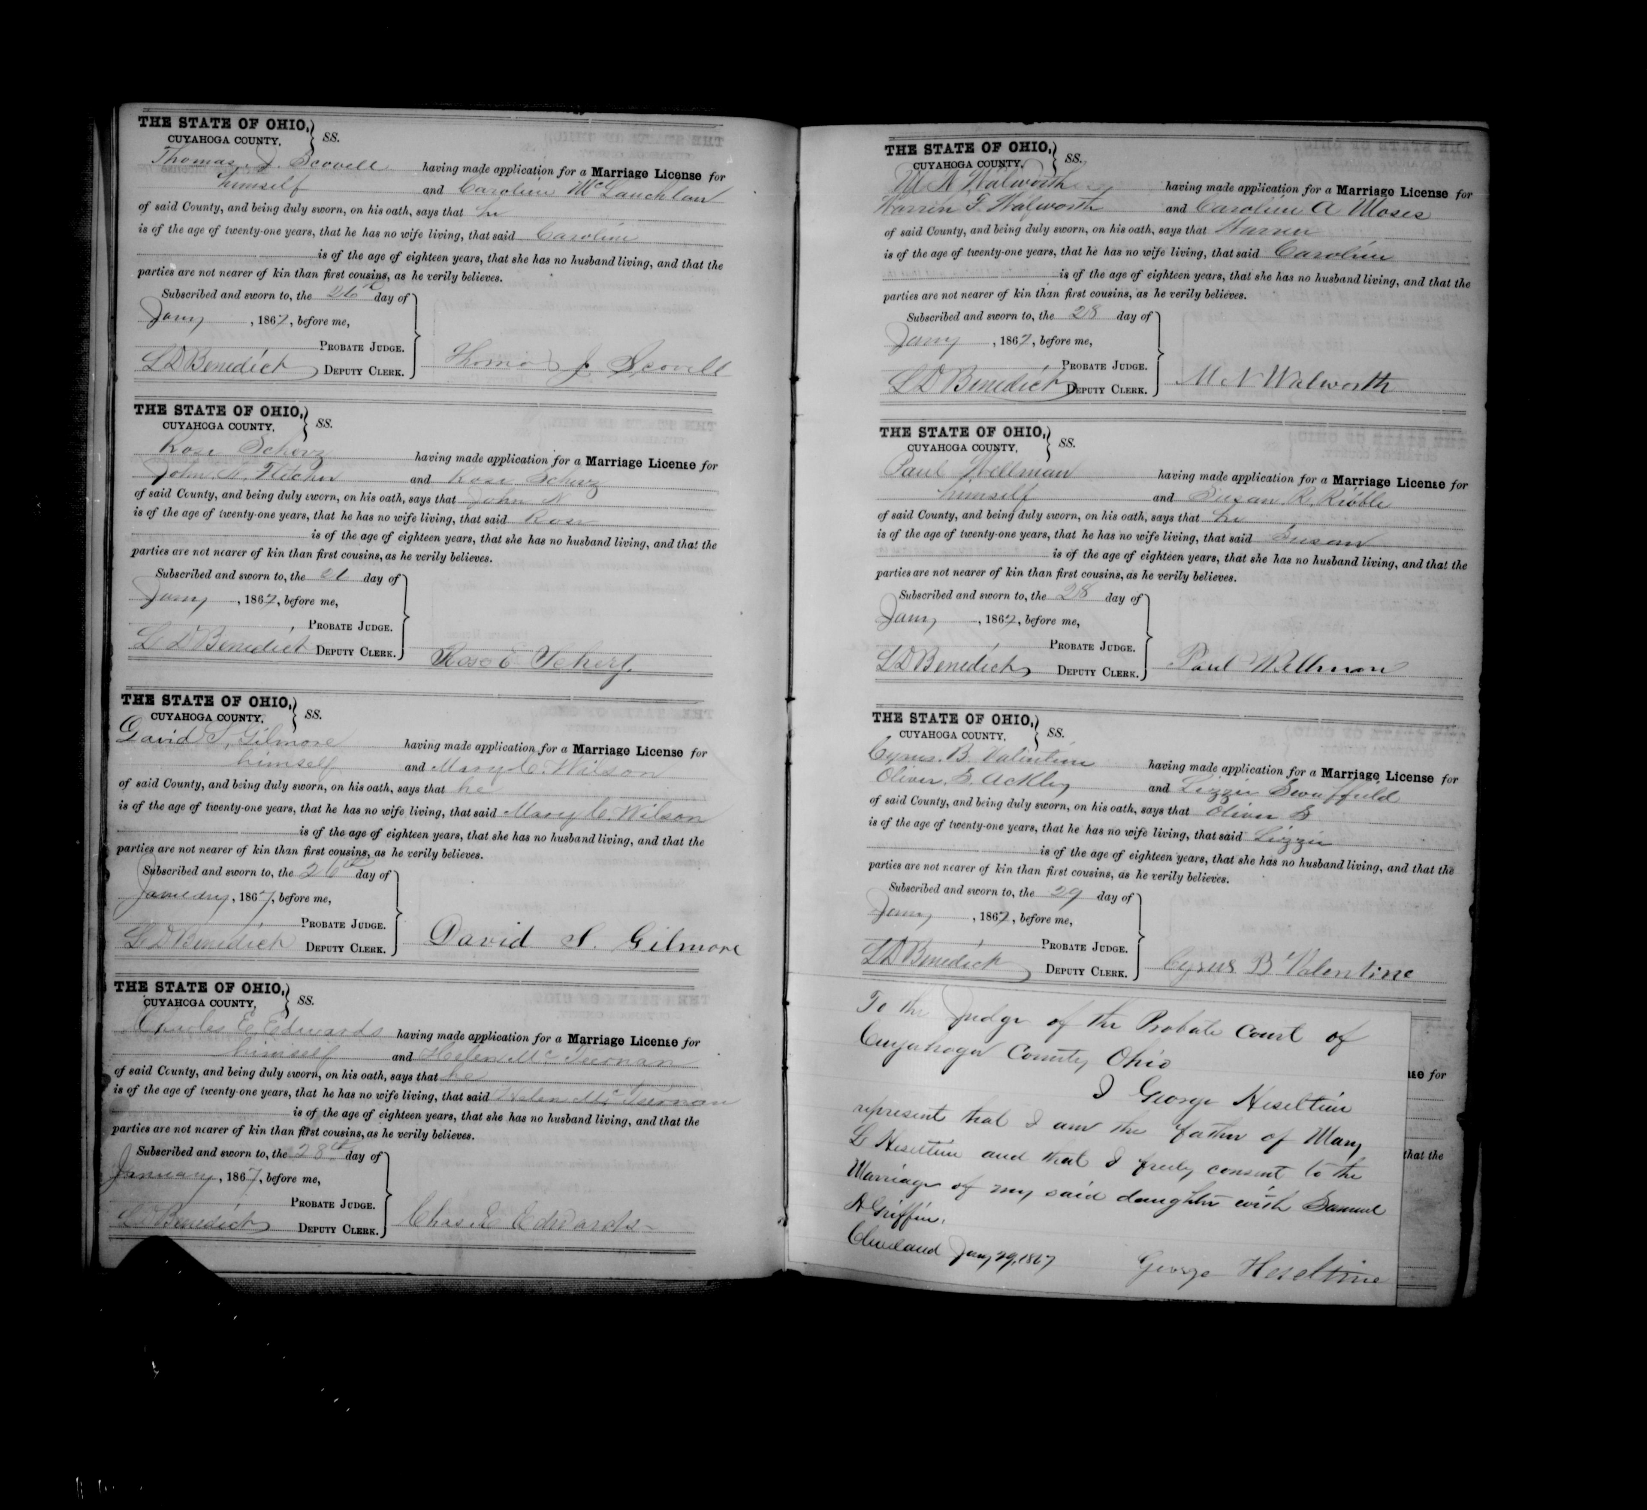 THE STATE OF OHIO,
CUYAHOGA COUNTY, SS.
Thomas J. Scovell having made application for a Marriage License for
himself and Caroline McLauchlan
of said County, and being duly sworn, on his oath, says that he
is of the age of twenty-one years, that he has no wife living, that said Caroline
is of the age of eighteen years, that she has no husband living, and that the
parties are not nearer of kin than first cousins, as he verily believes.
Subscribed and sworn to, the 26th day of
Jany, 1867, before me,
PROBATE JUDGE.
L D Benedict DEPUTY CLERK. Thomas J. Scovell
THE STATE OF OHIO,
CUYAHOGA COUNTY, SS.
Rose Scherz having made application for a Marriage License for
John N. Fletcher and Rose Scherz
of said County, and being duly sworn, on his oath, says that John N
is of the age of twenty-one years, that he has no wife living, that said Rose
is of the age of eighteen years, that she has no husband living, and that the
parties are not nearer of kin than first cousins, as he verily believes.
Subscribed and sworn to, the 21 day of
Jany, 1867, before me,
PROBATE JUDGE.
L D Benedict DEPUTY CLERK. Rose Scherz
THE STATE OF OHIO,
CUYAHOGA COUNTY, SS.
David S. Gilmore having made application for a Marriage License for
himself and Mary C. Wilson
of said County, and being duly sworn, on his oath, says that he
is of the age of twenty-one years, that he has no wife living, that said Mary C. Wilson
is of the age of eighteen years, that she has no husband living, and that the
parties are not nearer of kin than first cousins, as he verily believes.
Subscribed and sworn to, the 26th day of
January, 1867, before me,
PROBATE JUDGE.
L D Benedict DEPUTY CLERK. David S. Gilmore
THE STATE OF OHIO,
CUYAHOGA COUNTY, SS.
Charles E. Edwards having made application for a Marriage License for
himself and Helen McTiernan
of said County, and being duly sworn, on his oath, says that he
is of the age of twenty-one years, that he has no wife living, that said Helen McTiernan
is of the age of eighteen years, that she has no husband living, and that the
parties are not nearer of kin than first cousins, as he verily believes.
Subscribed and sworn to, the 28th day of
January, 1867, before me,
PROBATE JUDGE.
L D Benedict DEPUTY CLERK. Chas E Edwards
THE STATE OF OHIO,
CUYAHOGA COUNTY, SS.
M N Walworth having made application for a Marriage License for
Warren F. Walworth and Caroline A Moses
of said County, and being duly sworn, on his oath, says that Warren
is of the age of twenty-one years, that he has no wife living, that said Caroline
is of the age of eighteen years, that she has no husband living, and that the
parties are not nearer of kin than first cousins, as he verily believes.
Subscribed and sworn to, the 28 day of
Jany, 1867, before me,
PROBATE JUDGE.
L D Benedict DEPUTY CLERK. M N Walworth
THE STATE OF OHIO,
CUYAHOGA COUNTY, SS.
Paul Wellman having made application for a Marriage License for
himself and Susan R. Ribble
of said County, and being duly sworn, on his oath, says that he
is of the age of twenty-one years, that he has no wife living, that said Susan
is of the age of eighteen years, that she has no husband living, and that the
parties are not nearer of kin than first cousins, as he verily believes.
Subscribed and sworn to, the 28 day of
Jany, 1867, before me,
PROBATE JUDGE.
L D Benedict DEPUTY CLERK. Paul Wellman
THE STATE OF OHIO,
CUYAHOGA COUNTY, SS.
Cyrus B. Valentine having made application for a Marriage License for
Oliver E. Ackley and Lizzie Swaffield
of said County, and being duly sworn, on his oath, says that Oliver E
is of the age of twenty-one years, that he has no wife living, that said Lizzie
is of the age of eighteen years, that she has no husband living, and that the
parties are not nearer of kin than first cousins, as he verily believes.
Subscribed and sworn to, the 29 day of
Jany, 1867, before me,
PROBATE JUDGE.
L D Benedict DEPUTY CLERK. Cyrus B Valentine
To the Judge of the Probate Court of
Cuyahoga County Ohio
I George Heseltine
represent that I am the father of Mary
L Heseltine and that I freely consent to the
Marriage of my said daughter with Samuel
A Griffin.
Cleveland Jany 29, 1867
George Heseltine
nse for
that the